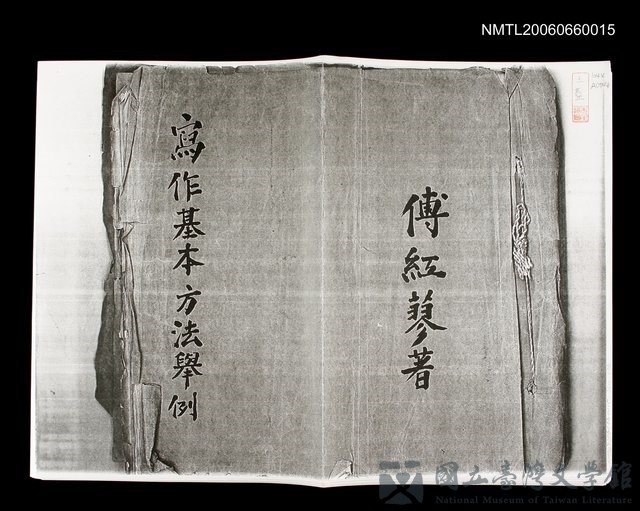 NMTL20060660015
傅紅蓼著
寫作基本方法舉例
國立臺灣文學館
National Museum of Taiwan Literature